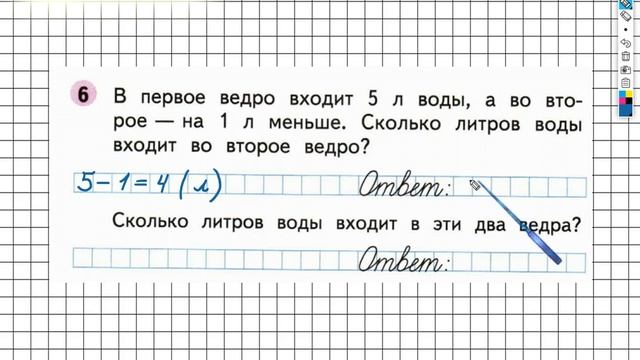 6 В первое ведро входит 5 л воды, а во вто-
рое — на 1 л меньше. Сколько литров воды
входит во второе ведро?
5 – 1 = 4 ( л ) Ответ:
Сколько литров воды входит в эти два ведра?
Ответ: